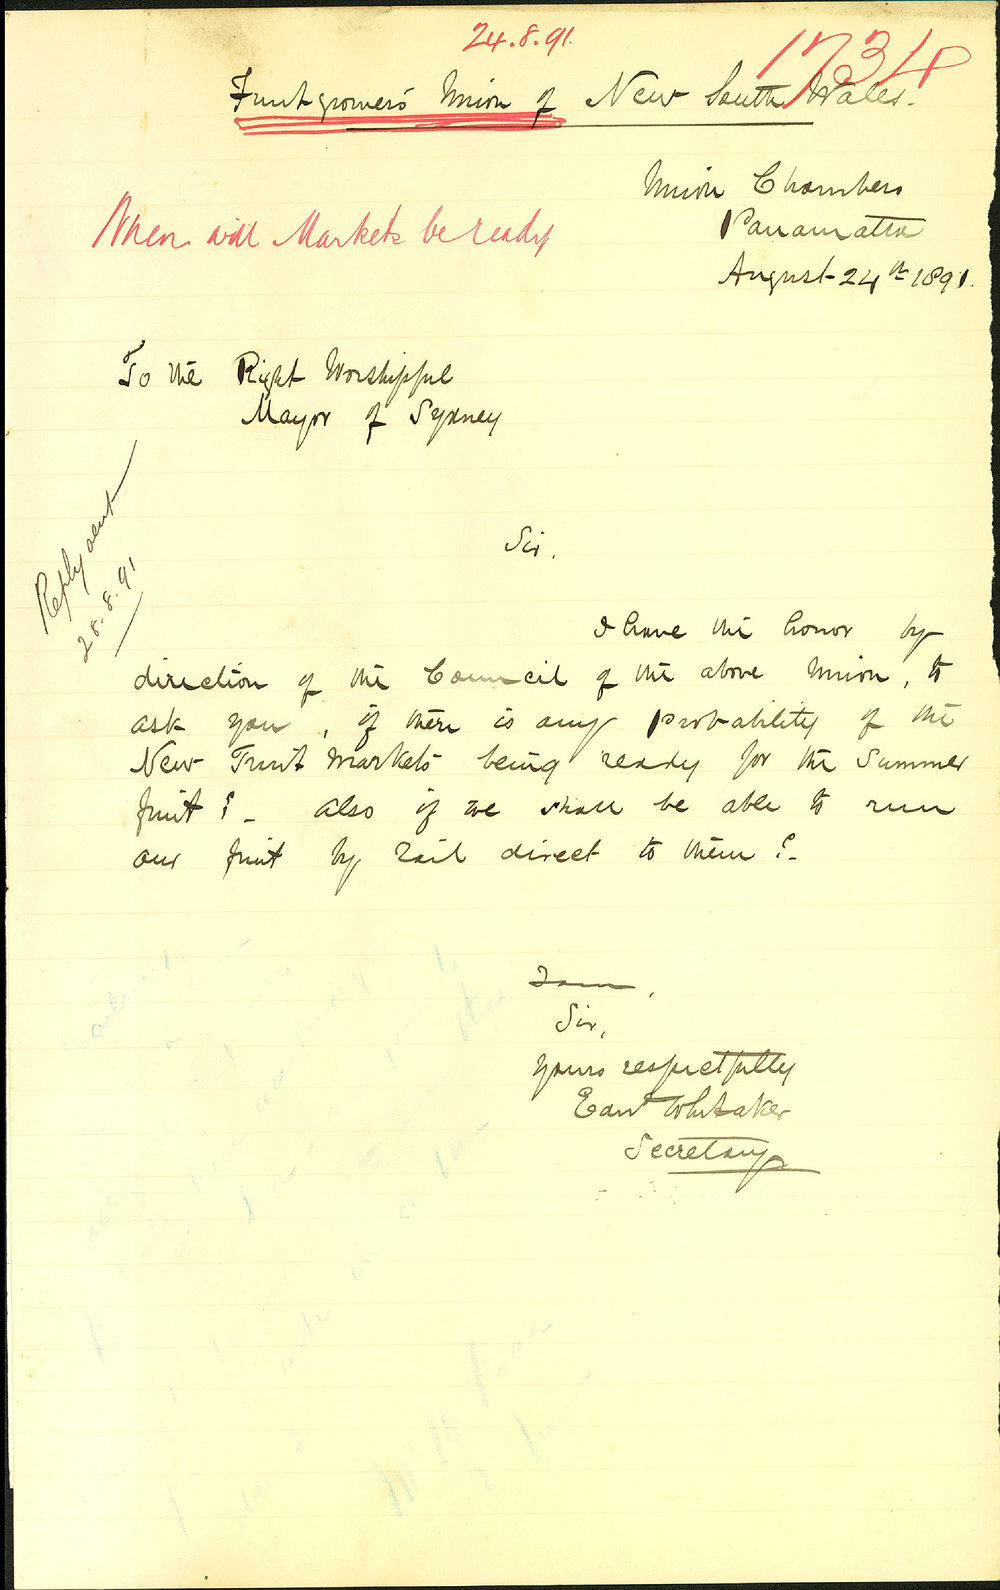 24.8.91.
1734
Fruitgrowers' Union of New South Wales.
Union Chambers
Parramatta
August 24th 1891.
When will Markets be ready
To the Right Worshipful
Mayor of Sydney
Reply sent
28.8.91
Sir.
I have the honor by
direction of the Council of the above Union, to
ask you, if there is any probability of the
New Fruit Markets being ready for the Summer
fruit? - also if we shall be able to run
our fruit by rail direct to them? -
I am,
Sir,
yours respectfully
Edwd Whitaker
Secretary